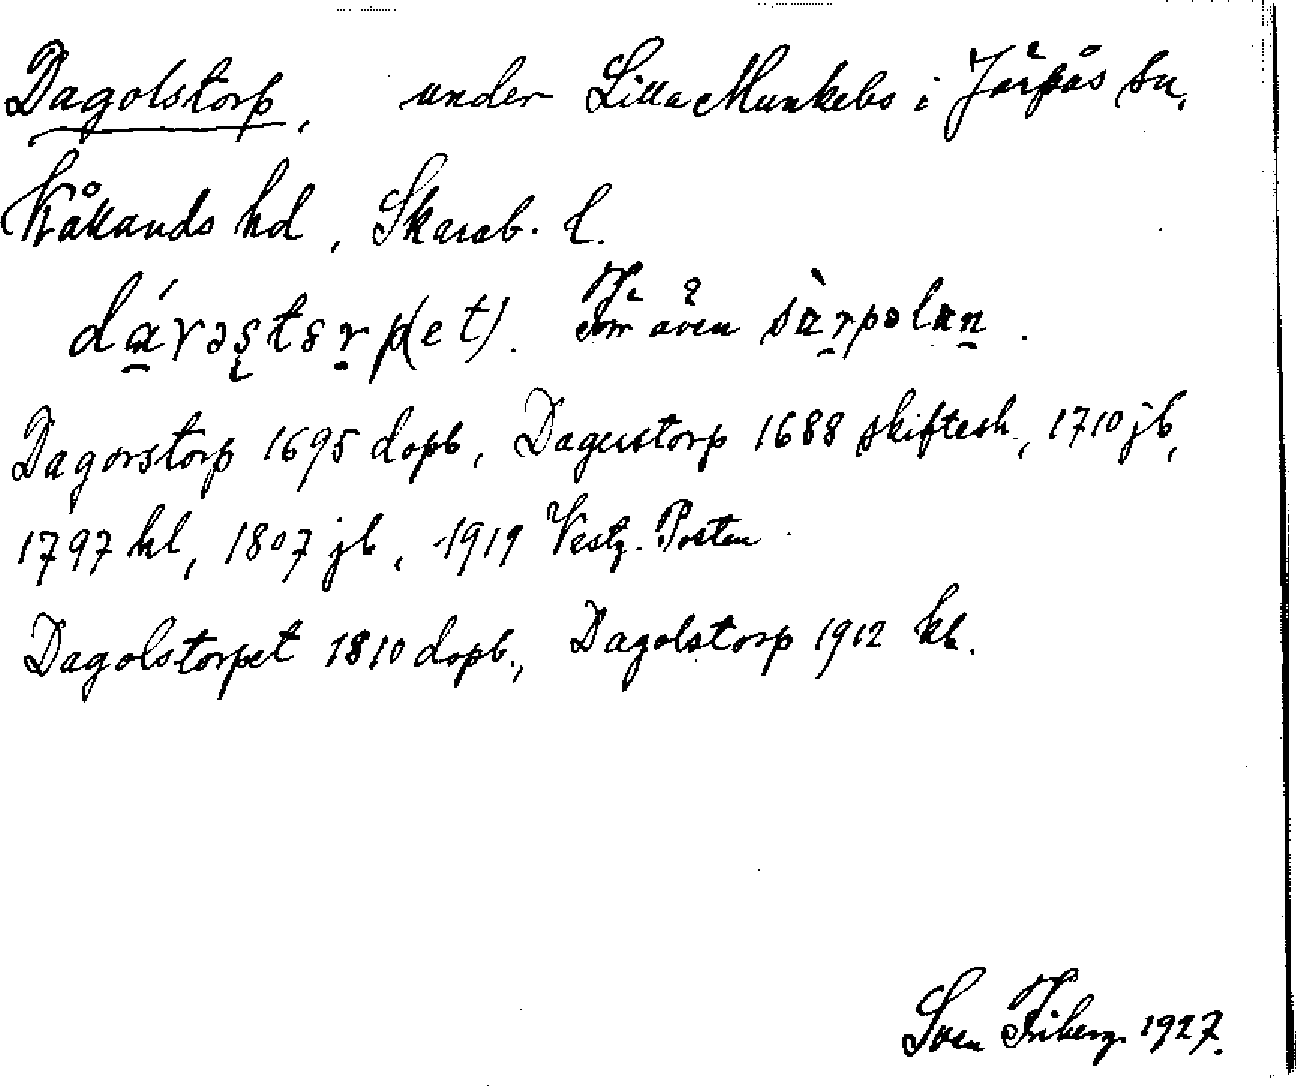 Dagolstorp, under Lilla Munkebo i Järpås sn,
Kållands hd, Skarab. l.
dávəstərp(et). Jfr även
Dagorstorp 1695 dopb, Dagerstorp 1688 skiftesh, 1710 jb,
1797 hl, 1807 jb, 1919 Vestg. Posten
Dagolstorpet 1810 dopb., Dagolstorp 1912 kb.
Sven Friberg 1927.